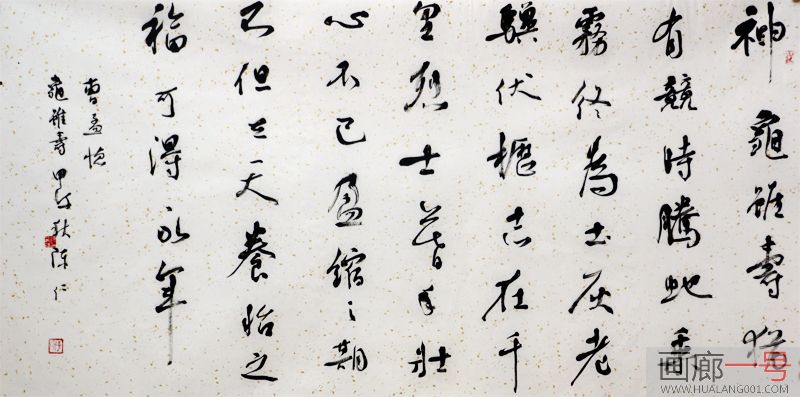 神龜雖壽猶
有競時騰蛇乘
霧終為土灰老
驥伏櫪志在千
里烈士暮年壯
心不已盈縮之期
不但在天養怡之
福可得永年
曹孟德
龜雖壽 甲午秋 陈仁
画廊一号
WWW.HUALANG001.COM